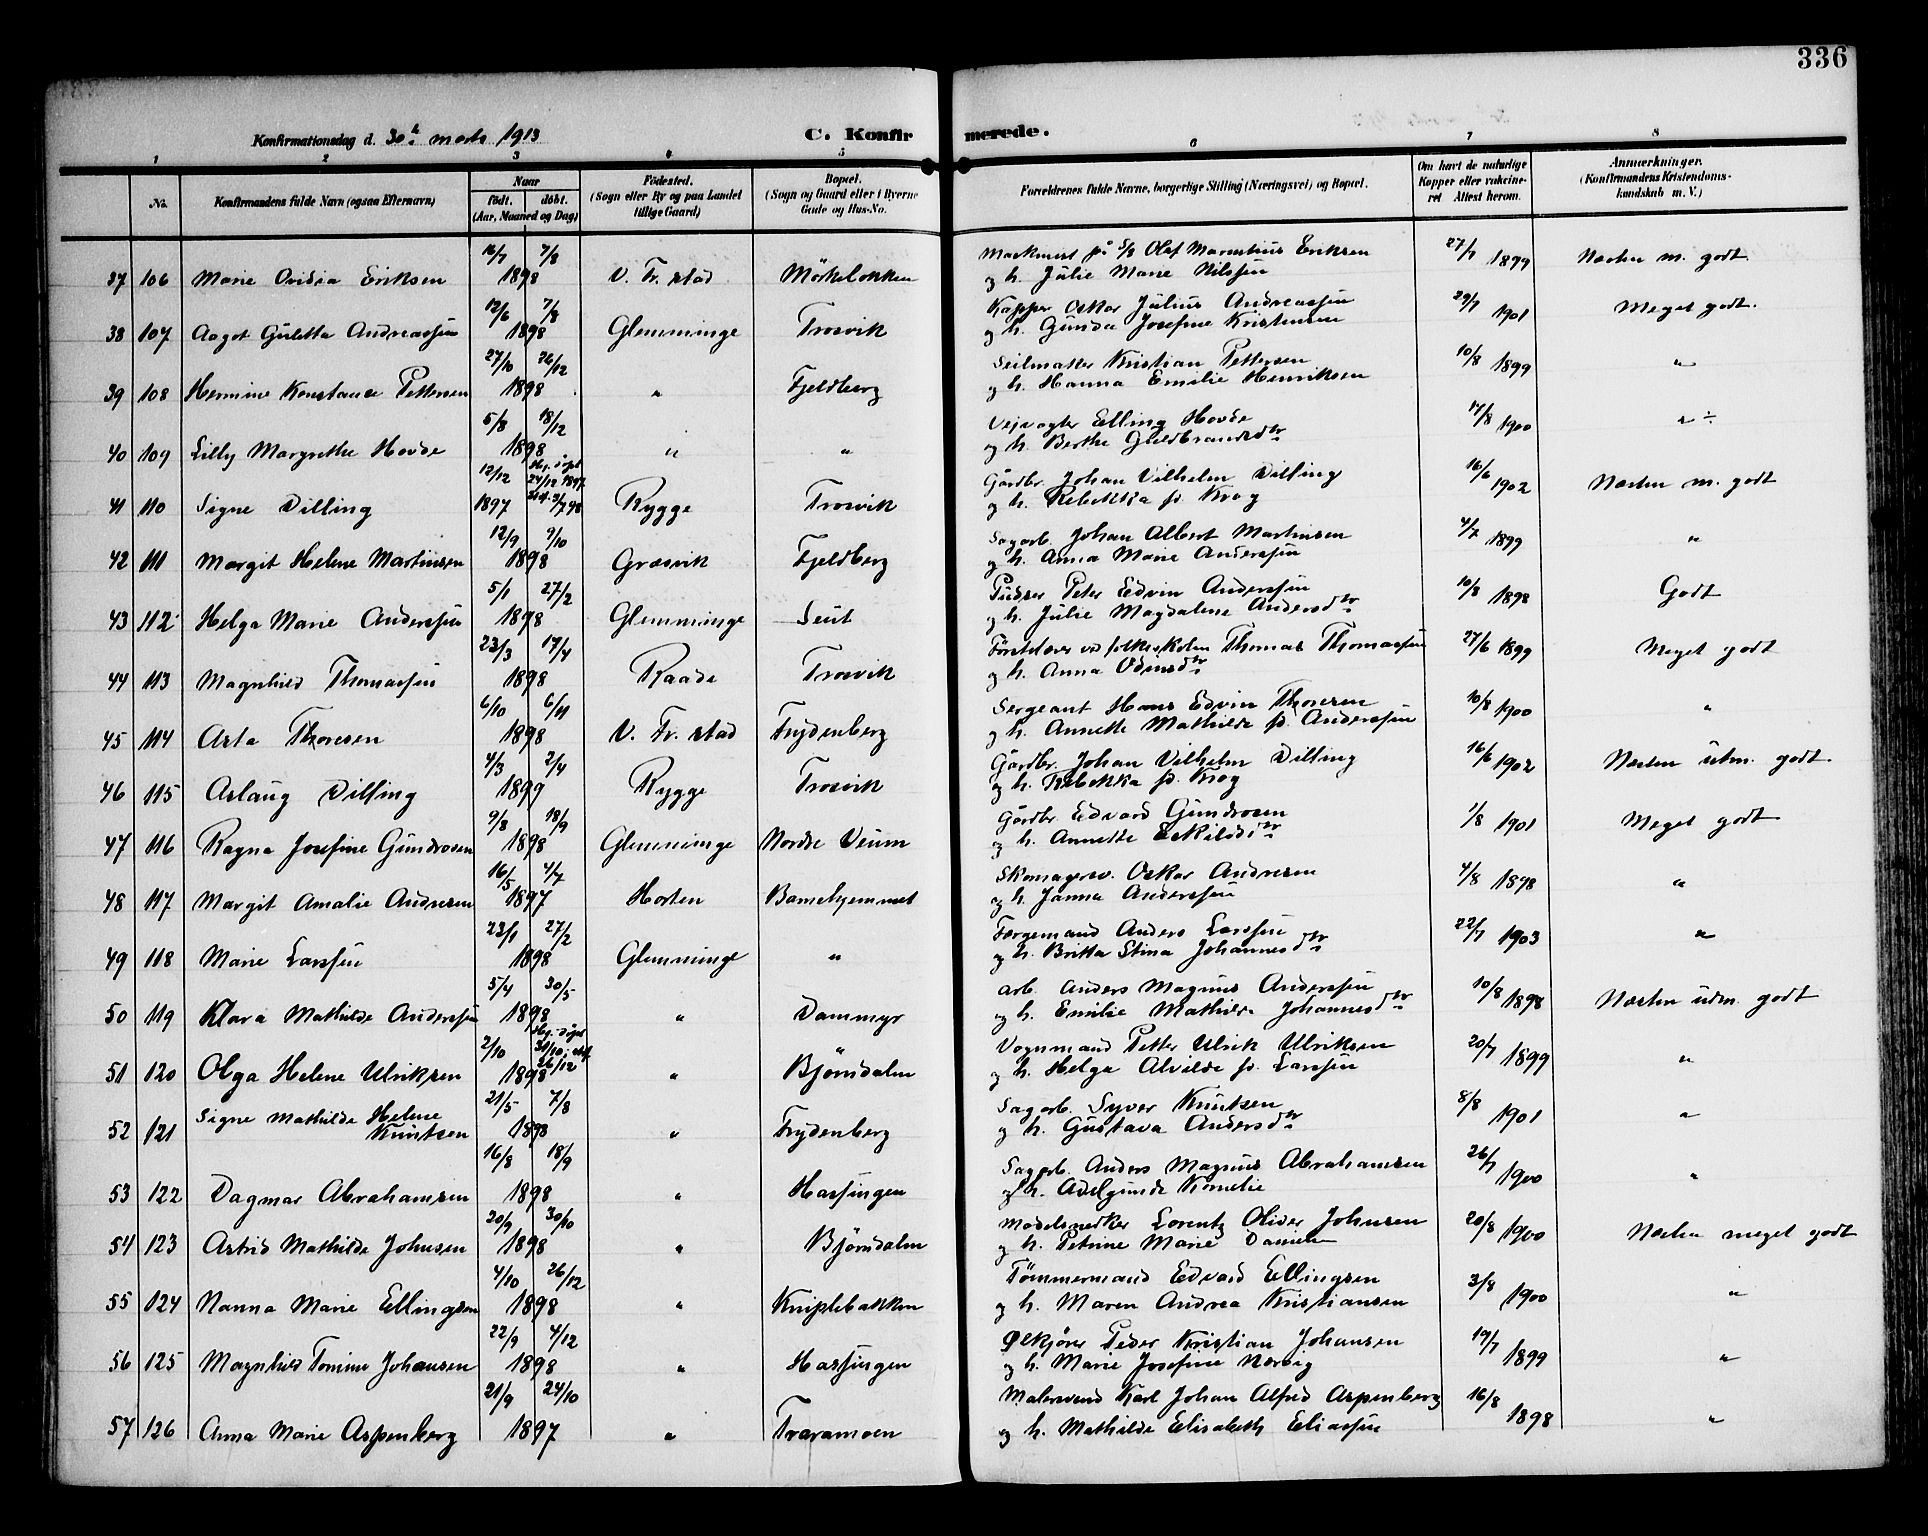 336
Konfirmationsdag d. 30te marts 1913
C. Konfirmerede.
1 2 3 4 5 6 7 8
No. Konfirmandens fulde Navn (ogsaa Efternavn) Naar født. døbt. (Aar, Maaned og Dag) Fødested. (Sogn eller By og paa Landet tillige Gaard) Bopæl. (Sogn og Gaard eller i Byerne Gade og Hus-No. Forældrenes fulde Navne, borgerlige Stilling (Næringsvei) og Bopæl. Om havt de naturlige Kopper eller vakcineret Attest herom. Anmærkninger. (Konfirmandens Kristendomskundskab m. V.)
37 106 Marie Ovidia Eriksen 16/7 1898 7/8 V. Fr. stad Mörkelökken Maskinist på S/S Olaf Marentius Eriksen 27/7 1899 Næsten m. godt
og h. Julie Marie Nilssen
38 107 Aagot Guletta Andreassen 12/6 1898 7/8 Glemminge Trosvik Kapper Oskar Julius Andreassen 29/7 1901 Meget godt.
og h. Gunda Josefine Kristensen
39 108 Hermine Konstanse Pettersen 27/10 1898 26/12 " Fjeldberg Seilmaker Kristian Pettersen 10/8 1899 "
og h. Hanna Emilie Henriksen
40 109 Lilly Margrethe Hovde 5/8 1898 18/12 " " Veivogter Elling Hovde 14/8 1900 " ÷
og h. Berthe Guldbrandsdtr
41 110 Signe Dilling 12/12 1897 Hj. döpt 24/12 1897 Rygge Trosvik Gårdbr. Johan Vilhelm Dilling 16/6 1902 Næsten m. godt
og h. Rebekka f. Krog
42 111 Margit Helene Martinsen 12/9 1898 9/10 Græsvik Fjeldberg Sagarb. Johan Albert Martinsen 4/7 1899 "
og h. Anna Marie Anderssen
43 112 Helga Marie Anderssen 5/1 1898 27/2 Glemminge Seut Pudser Peter Edvin Anderssen 10/8 1898 Godt
og h. Julie Magdalene Andersdtr
44 113 Magnhild Thomassen 23/3 1898 17/4 Raade Trosvik Förstelærer ved folkeskolen Thomas Thomassen 27/6 1899 Meget godt
og h. Anna Odinsdtr
45 114 Asta Thoresen 6/10 1898 6/11 V. Fr. stad Frydenberg Sergeant Hans Edvin Thoresen 10/8 1900 "
og h. Annette Mathilde f. Anderssen
46 115 Aslaug Dilling 4/3 1899 2/4 Rygge Trosvik Gårdbr. Johan Vilhelm Dilling 16/6 1902 Næsten udm. godt
og h. Rebekka f. Krog
47 116 Ragna Josefine Gundrosen 9/8 1898 18/9 Glemminge Nordre Veum Gårdbr Edvard Gundrosen 1/8 1901 Meget godt
og h. Annette Eskildsdtr
48 117 Margit Amalie Andresen 16/5 1897 4/7 Horten Barnehjemmet Skomagersv. Oskar Andresen 4/8 1898 "
og h. Janna Anderssen
49 118 Marie Larssen 23/1 1898 27/2 Glemminge " Færgemand Anders Larssen 22/7 1903 "
og h. Britta Stina Johannesdtr
50 119 Klara Mathilde Anderssen 5/4 1898 30/5 " Dammyr Arb. Anders Magnus Anderssen 10/8 1898 Næsten udm. godt
og h. Emilie Mathilde Johannesdtr
51 120 Olga Helene Ulriksen 2/10 1898 Hj. döpt 31/10; stf. 26/12 " Björndalen Vognmand Petter Ulrik Ulriksen 20/7 1899 "
og h. Helga Alvilde f. Larssen
52 121 Signe Mathilde Helene Knutsen 21/5 1898 7/8 " Frydenberg Sagarb. Syver Knutsen 8/8 1901 "
og h. Gustava Andersdtr
53 122 Dagmar Abrahamsen 16/8 1898 18/9 " Hassingen Sagarb. Anders Magnus Abrahamsen 26/7 1900 "
og h. Adelgunde Kornelie
54 123 Astrid Mathilde Johnsen 20/9 1898 30/10 " Björndalen Modelsnedker Lorentz Oliver Johnsen 20/8 1900 Næsten meget godt
og h. Petrine Marie
55 124 Nanna Marie Ellingsen 4/10 1898 26/12 " Kniplebakken Tømmermand Edvard Ellingsen 3/8 1900 "
og h. Maren Andrea Kristiansen
56 125 Magnhild Tomine Johansen 22/9 1898 4/12 " Hassingen Ølkjörer Peder Kristian Johansen 19/7 1899 "
og h. Marie Josefine Nærbig
57 126 Anna Marie Aspenberg 21/9 1897 24/10 " Traramoen Malersvend Karl Johan Alfred Aspenberg 16/8 1898 "
og h. Mathilde Elisabeth Eliassen